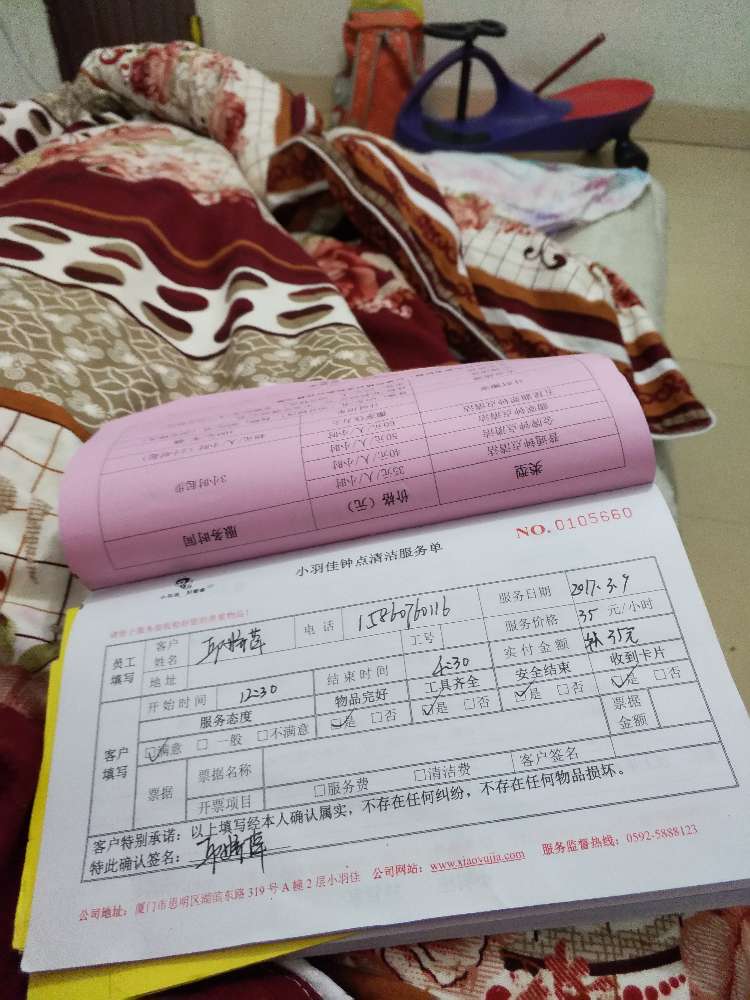 类型
价格（元）
服务时间
普通钟点清洁
35元/人/小时
3小时起步
金牌钟点清洁
40元/人/小时
50元/人/小时
60元/人/小时
NO.0105660
小羽佳钟点清洁服务单
员工填写
客户姓名
电话
15860760116
服务日期
2017.3.9
地址
工号
服务价格
35 元/小时
开始时间
12:30
结束时间
4:30
实付金额
35元
客户填写
服务态度
物品完好
工具齐全
安全结束
收到卡片
☑满意 □ 一般 □不满意
☑是 □否
☑是 □否
☑是 □否
☑是 □否
票据
票据名称
票据金额
开票项目
□服务费
□清洁费
客户签名
客户特别承诺：以上填写经本人确认属实，不存在任何纠纷，不存在任何物品损坏。
特此确认签名：
公司地址：厦门市思明区湖滨东路319号A幢2层小羽佳 公司网站：www.xiaoyujia.com 服务监督热线：0592-5888123